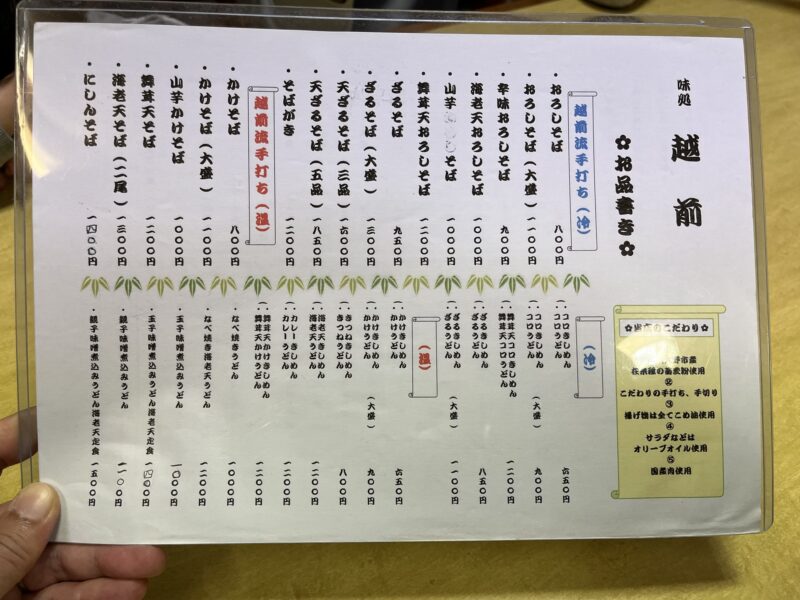 味処 越前
✿お品書き✿
越前流手打ち(冷)
・おろしそば 八〇〇円
・おろしそば(大盛) 一一〇〇円
・辛味おろしそば 九〇〇円
・海老天おろしそば 一〇〇〇円
・山芋 そば 一〇〇〇円
・舞茸天おろしそば 一二〇〇円
・ざるそば 九五〇円
・ざるそば(大盛) 一三〇〇円
・天ざるそば(三品) 一六〇〇円
・天ざるそば(五品) 一八五〇円
・そばがき 一二〇〇円
越前流手打ち(温)
・かけそば 八〇〇円
・かけそば(大盛) 一一〇〇円
・山芋かけそば 一〇〇〇円
・舞茸天そば 一二〇〇円
・海老天そば(二尾) 一三〇〇円
・にしんそば 一四〇〇円
✿当店のこだわり✿
野市産
在来種の蕎麦粉使用
②
こだわりの手打ち、手切り
③
揚げ物は全てこめ油使用
④
サラダなどは
オリーブオイル使用
⑤
国産肉使用
(冷)
・コロきしめん
・コロうどん 六五〇円
・コロきしめん
・コロうどん (大盛) 九〇〇円
・舞茸天コロきしめん
・舞茸天コロうどん 一二〇〇円
・ざるきしめん
・ざるうどん 八五〇円
・ざるきしめん
・ざるうどん (大盛) 一一〇〇円
(温)
・かけきしめん
・かけうどん 六五〇円
・かけきしめん
・かけうどん (大盛) 九〇〇円
・きつねきしめん
・きつねうどん 八〇〇円
・海老天きしめん
・海老天うどん 一二〇〇円
・カレーきしめん
・カレーうどん 一二〇〇円
・舞茸天かけきしめん
・舞茸天かけうどん 一二〇〇円
・なべ焼きうどん 一〇〇〇円
・なべ焼き海老天うどん 一二〇〇円
・玉子味噌煮込みうどん 一〇〇〇円
・玉子味噌煮込みうどん海老天定食 一四〇〇円
・親子味噌煮込みうどん 一一〇〇円
・親子味噌煮込みうどん海老天定食 一五〇〇円